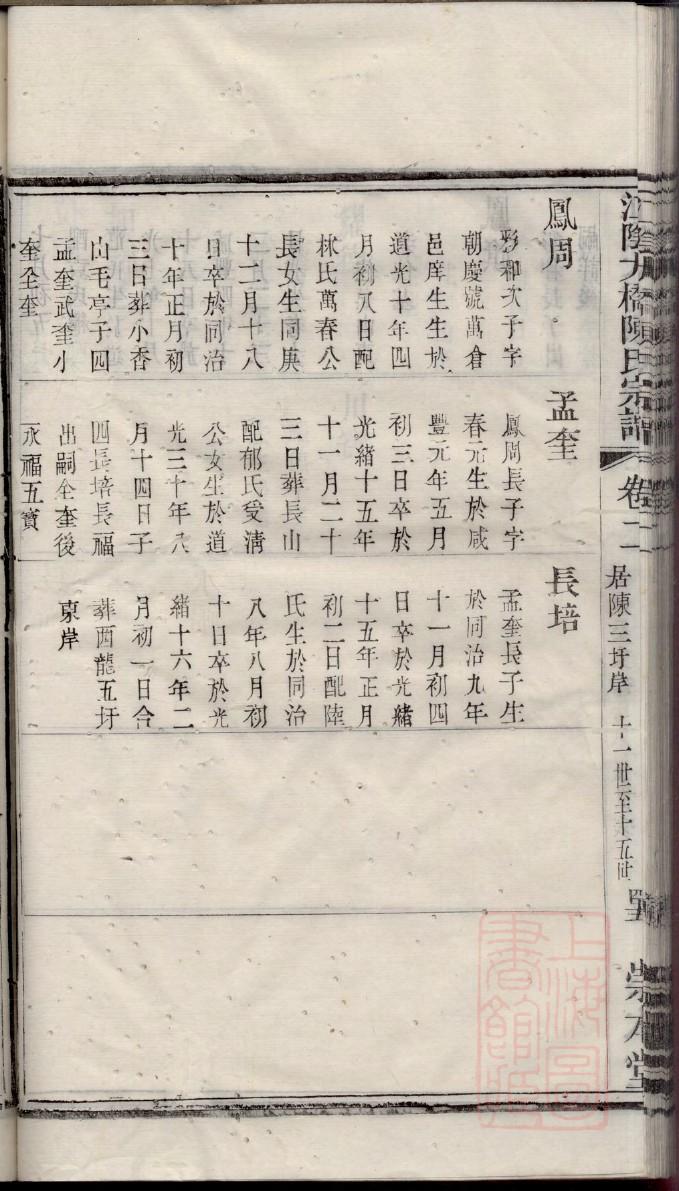 鳳周
彩和次子字
朝慶號萬倉
邑庠生生於
道光十年四
月初八日配
林氏萬春公
長女生同庚
十二月十八
日卒於同治
十年正月初
三日葬小香
山毛亭子四
孟奎武奎小
奎全奎
孟奎
鳳周長子字
春元生於咸
豐元年五月
初三日卒於
光緒十五年
十一月二十
三日葬長山
配郁氏受淸
公女生於道
光三十年八
月十四日子
四長培長福
出嗣全奎後
永福五寶
長培
孟奎長子生
於同治九年
十一月初四
日卒於光緒
十五年正月
初二日配陸
氏生於同治
八年八月初
十日卒於光
緒十六年二
月初一日合
葬酉龍五圩
東岸
江陰 橋陳氏宗譜
卷二
居陳三圩岸
十一世至十五世
崇本堂
上海圖書館藏